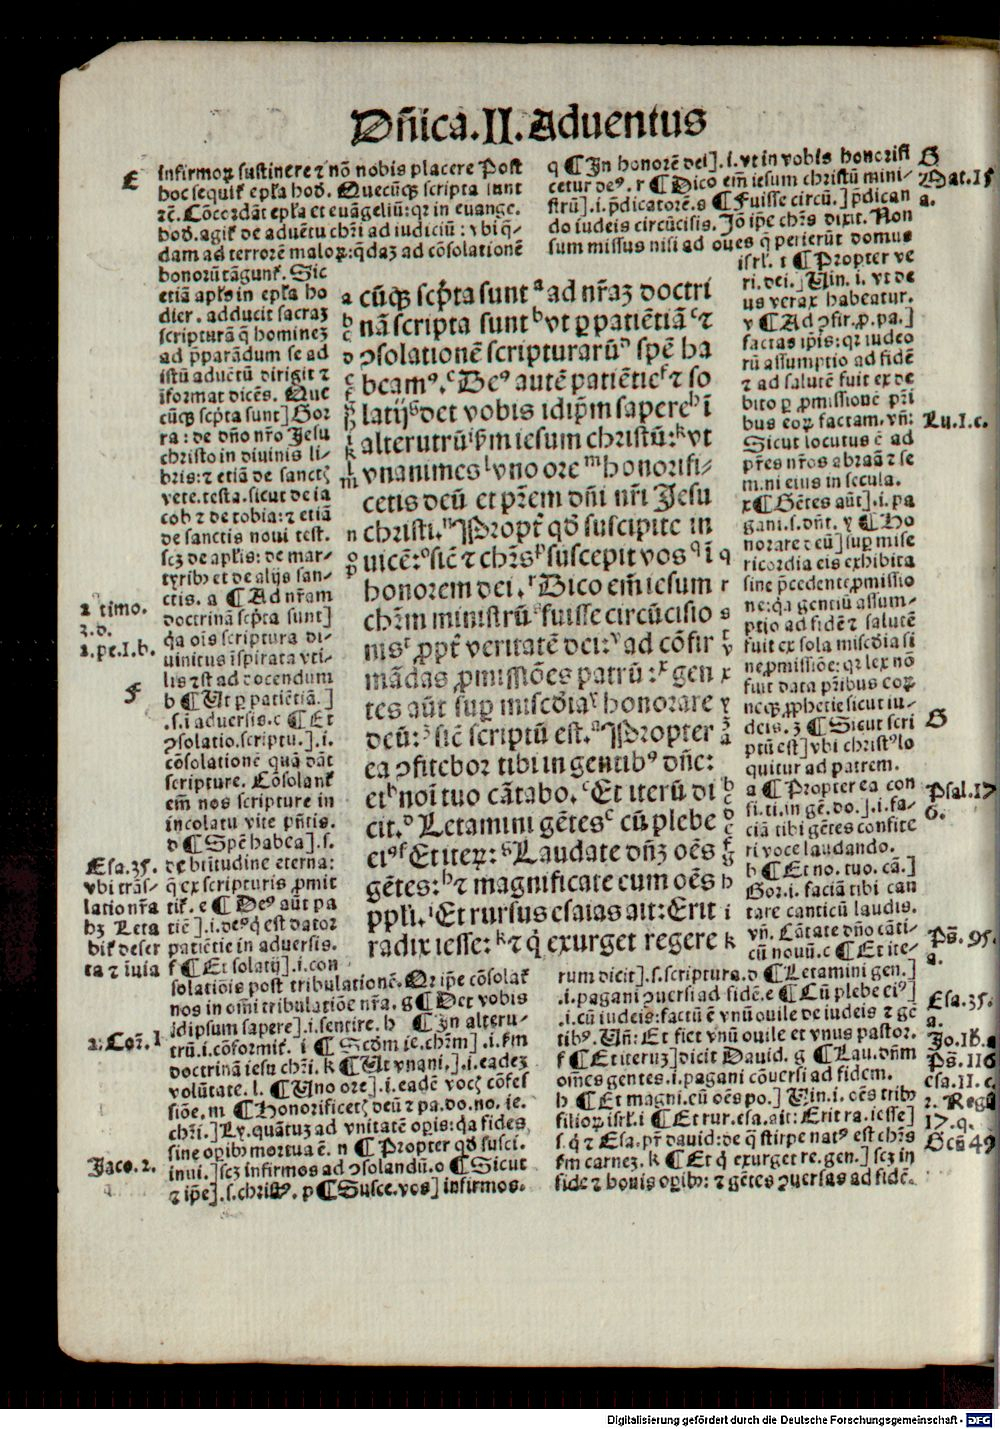 Dñica.II.Aduentus
E
infirmoꝝ sustinere ⁊ nõ nobis placere Post
hoc sequit᷑ ep̃la hod. Quecũqꝫ scripta sunt
⁊c̃. Cõcordãt ep̃la et euãgeliũ: qꝛ in euange.
hod. agit᷑ de aduẽtu chꝛ̃i ad iudiciũ : vbi q̃-
dam ad terrorẽ maloꝝ: q̃daꝫ ad cõsolationẽ
honorũ tãgunt᷑. Sic
etiã apl̃s in ep̃la ho
dier. adducit sacraꝫ
scripturã q̃ homineꝫ
ad p̃parãdum se ad
istũ aduẽtũ dirigit ⁊
ĩformat dicẽs. Que
cũqꝫ scp̃ta sunt] Gor
ra : de dño nr̃o Jesu
christo in diuinis li-
bris: ⁊ etiã de sanctꝭ
vete. testa. sicut de ia
cob ⁊ de tobia: ⁊ etiã
de sanctis noui test.
scꝫ de apl̃is: de mar-
tyribꝰ et de alijs san-
ctis. a ¶ Ad nr̃am
doctrinã scp̃ta sunt]
q̃a oĩs scriptura di-
uinitus ĩspirata vti-
lis ⁊st ad docendum
b ¶ Ut ꝑ patiẽtiã.]
.s. ĩ aduersis. c ¶ Et
ꝯsolatio. scriptu.] .i.
cõsolationẽ quã dãt
scripture. Cõsolant᷑
em̃ nos scripture in
incolatu vite pñtis.
d ¶ Spẽ habea]. s.
de bt̃itudine eterna:
q̃ ex scripturis ꝓmit
tit᷑. e ¶ Deꝰ aũt pa
tiẽ] .i. deꝰ q̃ est dator
patiẽtie in aduersis.
f ¶ Et solatij] .i. con
solatiõis post tribulationẽ. Qꝛ ip̃e cõsolat᷑
nos in om̃i tribulatiõe nr̃a. g ¶ Det vobis
idipsum sapere] .i. sentire. h ¶ Jn alteru-
trũ .i. cõformit᷑. i ¶ Scd̃m ie. chr̃m] .i. ẜm
doctrinã iesu chꝛ̃i. k ¶ Ut vnani.] .i. eadeꝫ
volũtate. l. ¶ Uno ore] .i. eadẽ vocꝭ cõfes
siõe. m ¶ Honorificetꝭ deũ ⁊ pa. do. no. ie.
chꝛ̃i.] Ly. quãtuꝫ ad vnitatẽ oꝑis: q̃a fides
sine oꝑibꝰ mortua ẽ. n ¶ Propter qd̃ susci.
inui.] scꝫ infirmos ad ꝯsolandũ. o ¶ Sicut
⁊ ip̃e] .s. christꝰ. p ¶ Susce. vos] infirmos.
2 timo.
3. d.
1. pe. I. b.
f
Esa. 35.
vbi trãs-
latio nr̃a
hꝫ Leta
bit᷑ deser
ta ⁊ ĩuia
2. Coꝛ̃. 1
Jaco. 2.
cũqꝫ scp̃ta sunt ᵃ ad nr̃aꝫ doctri
nã scripta sunt ᵇ vt ꝑ patiẽtiã ᶜ ⁊
ꝯsolationẽ scripturarũ ᵈ spẽ ha
beamꝰ. ᵉ Deꝰ autẽ patiẽtie ᶠ ⁊ so
latij ᵍ det vobis idip̃m sapere ʰ ĩ
alterutrũ ⁱ ẜm iesum christũ: ᵏ vt
vnanimes ˡ vno ore ᵐ honorifi-
cetis deũ et pr̃em dñi nr̃i Jesu
christi. ⁿ Propt̃ qd̃ suscipite in
uicẽ: ᵒ sic̃ ⁊ chr̃s ᵖ suscepit vos q ĩ
honorem dei. ʳ Dico em̃ iesum
chr̃m ministrũ ˢ fuisse circũcisio
nis ᵗ ꝓpt̃ veritatẽ dei: ᵛ ad cõfir
mãdas ꝓmissiões patrũ : ˣ gen
tes aũt suꝑ miscd̃ia ʸ honorare
deũ: ᶻ sic̃ scriptũ est. ᵃ Propter
ea ꝯfitebor tibi in gentibꝰ dñe:
et ᵇ noĩ tuo cãtabo. ᶜ Et iterũ di
cit. ᵈ Letamini gẽtes ᵉ cũ plebe
eiꝰ ᶠ Et iteꝝ: ᵍ Laudate dñꝫ oẽs
gẽtes: ʰ ⁊ magnificate eum oẽs
ppl̃i. ⁱ Et rursus esaias ait: Erit
radix iesse: ᵏ ⁊ q̃ exurget regere
q ¶ Jn honorẽ dei] .i. vt in vobis honorifi
cetur deꝰ. r ¶ Dico em̃ iesum christũ mini-
strũ] .i. p̃dicatorẽ. s ¶ Fuisse circũ.] p̃dican
do iudeis circũcisis. Jõ ip̃e chr̃s dixit. Non
sum missus nisi ad oues q̃ perierũt domus
isrl̃. t ¶ Propter ve
ri. dei.] Uin. i. vt de
us verax habeatur.
v ¶ Ad ꝯfir. ꝓ. pa.]
factas ip̃is: qꝛ iudeo
rũ assumptio ad fidẽ
⁊ ad salutẽ fuit ex de
bito ꝑ ꝓmissionẽ pr̃i
bus eoꝝ factam. vñ:
Sicut locutus ẽ ad
pr̃es nr̃os abraã ⁊ se
m. ni eius in secula.
x ¶ Gẽtes aũt] .i. pa
gani. s. dñt. y ¶ Ho
norare deũ] suꝑ mise
ricordia eis exhibita
sine p̃cedente ꝓmissio
ne: q̃a gentiũ assum-
ptio ad fidẽ ⁊ salutẽ
fuit ex sola miscd̃ia si
ne ꝓmissiõe: qꝛ lex nõ
fuit data pr̃ibus eoꝝ
neqꝫ ꝓphetie sicut iu-
deis. z ¶ Sicut scri
ptũ est] vbi christꝰ lo
quitur ad patrem.
a ¶ Propter ea con
fi. ti. in gẽ. do.] .i. fa-
ciã tibi gẽtes confite
ri voce laudando.
b ¶ Et no. tuo. cã.]
Gor. i. faciã tibi can
tare canticũ laudis.
vñ. Cãtate dño cãti-
cũ nouũ. c ¶ Et ite-
rum dicit] .s. scriptura. d ¶ Letamini gen.]
.i. pagani ꝯuersi ad fidẽ. e ¶ Cũ plebe eiꝰ]
.i. cũ iudeis: factũ ẽ vnũ ouile de iudeis ⁊ gẽ
tibꝰ. Uñ: Et fiet vnũ ouile et vnus pastor.
f ¶ Et iteruꝫ] dicit Dauid. g ¶ Lau. dñm
om̃es gentes. i. pagani cõuersi ad fidem.
h ¶ Et magni. cũ oẽs po.] Uin. i. oẽs tribꝰ
filioꝝ isrl̃. i ¶ Et rur. esa. ait: Erit ra. iesse]
s. q̃ ⁊ Esa. pr̃ dauid: de q̃ stirpe natꝰ est chr̃s
ẜm carneꝫ. k ¶ Et q̃ exurget re. gen.] scꝫ in
fide ⁊ bonis oꝑibꝰ: ⁊ gẽtes ꝯuersas ad fidẽ.
G
Mat. 15
a.
Lu. I. c.
G
Psal. 17
6.
Ps̃. 95.
a.
Esa. 35.
a.
Jo. 10.
Ps̃. 116
esa. 11. c.
2. Regũ
17. q.
Gen̄ 49
Digitalisierung gefördert durch die Deutsche Forschungsgemeinschaft - DFG